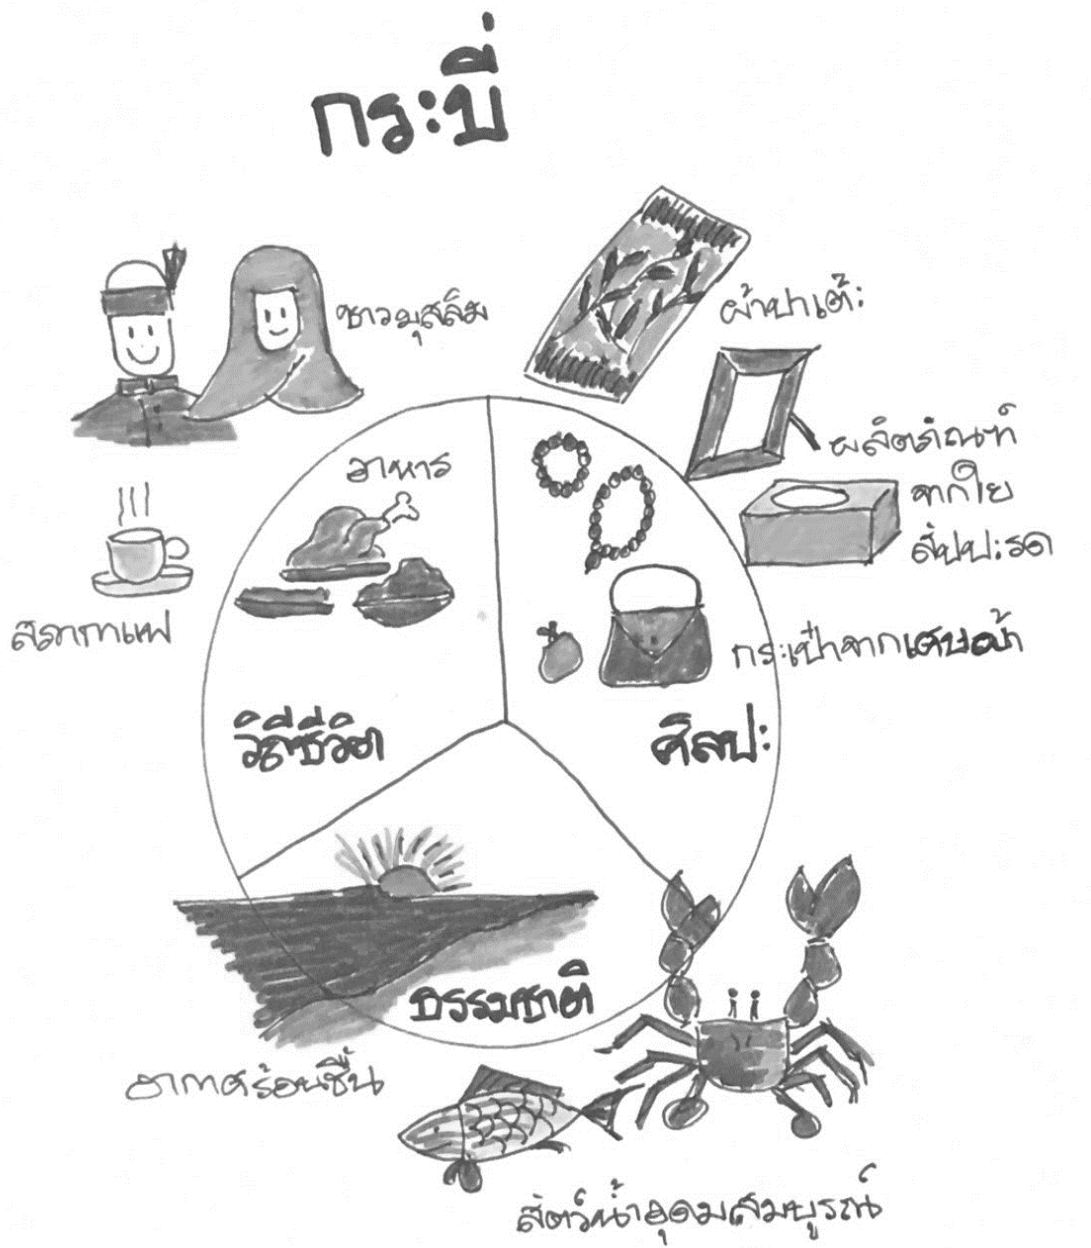 กระบี่
ชาวมุสลิม
ผ้าปาเต๊ะ
ผลิตภัณฑ์
จากใย
สัปปะรด
อาหาร
สภากาแฟ
กระเป๋าจากเศษผ้า
วิถีชีวิต
ศิลปะ
ธรรมชาติ
อากาศร้อนชื้น
สัตว์น้ำอุดมสมบูรณ์